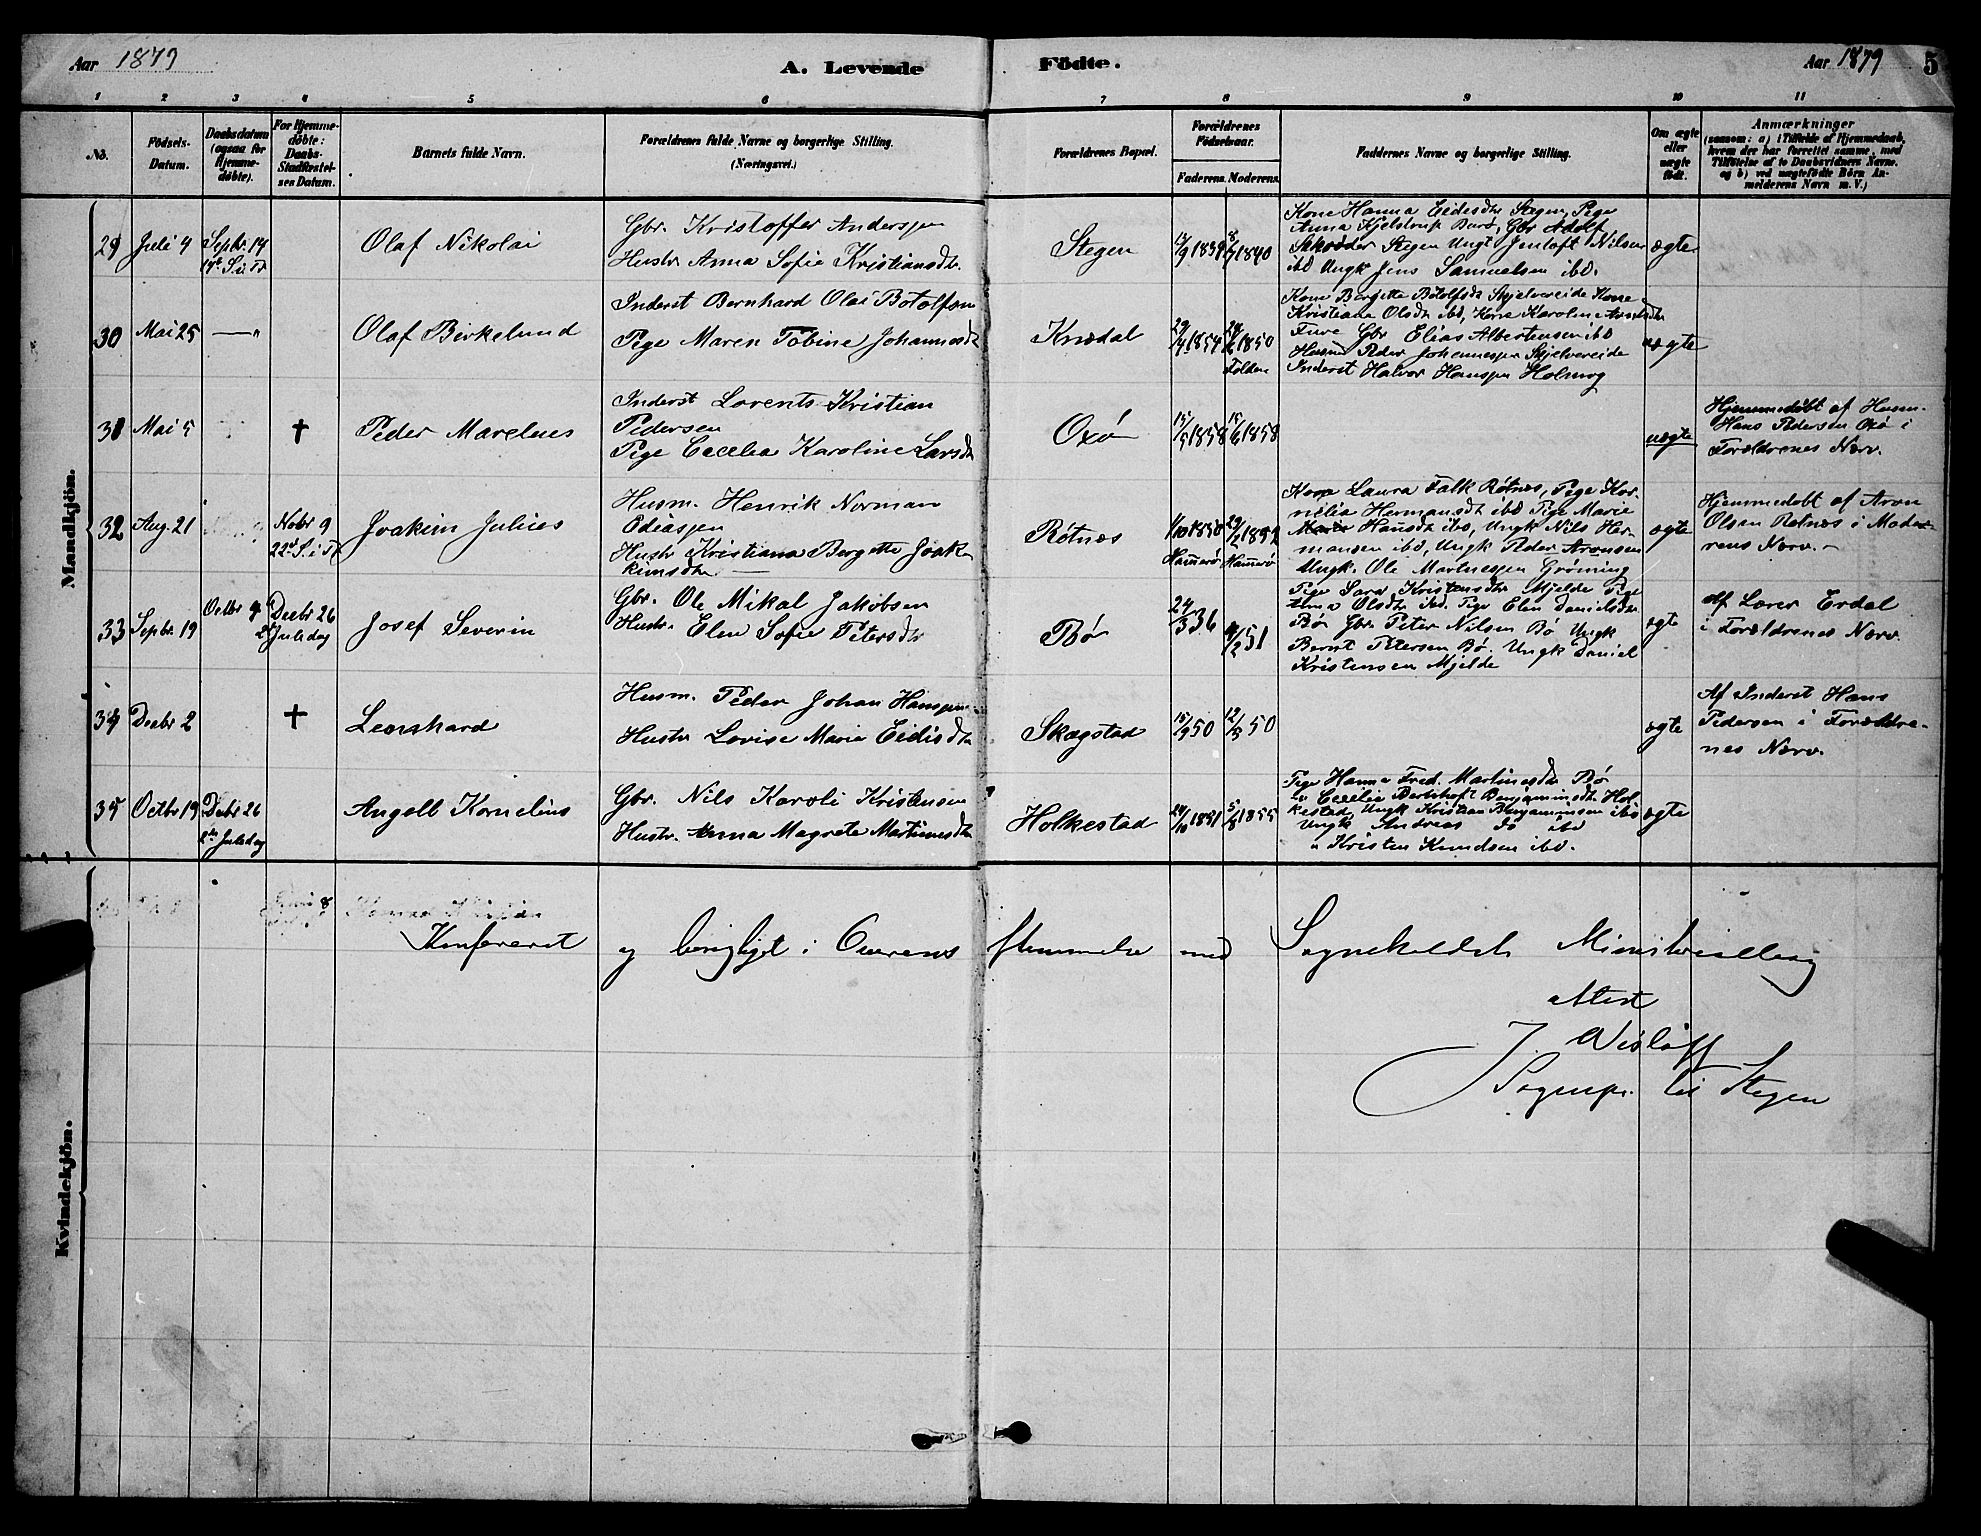 Aar 1879
A. Levende
Födte.
Aar 1879
5
1 2 3 4 5 6 7 8 9 10 11
No.
Födsels-
Datum.
Daabsdatum
(ogsaa for
Hjemme-
döbte).
For Hjemme-
döbte:
Daabs-
Stadfæstel-
ses Datum.
Barnets fulde Navn.
Forældrenes fulde Navne og borgerlige Stilling.
(Næringsvei.)
Forældrenes Bopæl.
Forældrenes
Födselsaar.
Faderens. Moderens.
Faddernes Navne og borgerlige Stilling.
Om ægte
eller
uægte
födt.
Anmærkninger
(saasom: a) i Tilfælde af Hjemmedaab,
hvem der har forrettet samme, med
Tilföielse af to Daabsvidners Navne,
og b) ved uægtefödte Börn An-
melderens Navn m. V.)
Mandkjön.
29 Juli 4 Septbr. 14
Olaf Nikolai
Gbr. Kristoffer Anderssen
Hustr Anna Sofie Kristiansdtr.
Stegen
1839 1840
Kone Hanna Eidesdtr Stegen, Pige
Anna Kjelstrup Burø, Gbr Adolf
Skrædder Stegen Ungk Jentoft Nilsen
ibd Ungk Jens Samuelsen ibd.
ægte
30 Mai 25 — "
Olaf Birkelund
Inderst Bernhard Olai Botolfsen
Pige Maren Tobine Johannesdtr
Knædal
1854 1850
Folden
Kone Bergette Botolfsdtr Skjelvereide Kone
Kristiana Olsdtr ibd, Kone Karoline
Fure Gbr Elias Albertsen ibd
Husm Peder Johannessen Skjelvereide
Inderst Halvor Hanssen Holmog
uægte
31 Mai 5 †
Peder Marelius
Inderst Lorents Kristian
Pedersen
Pige Cecelia Karoline Larsdtr
Oxø
15/5 1858 15/6 1858
uægte
Hjemmedøbt af Husm.
Hans Pedersen Oxø i
Forældrenes Nærv.
32 Aug. 21 Nobr 9
22d S. i Tr
Joakim Julius
Husm. Henrik Norman
Odiassen
Hustr Kristiana Bergette Joak-
kimsdtr —
Røtnæs
1/10 1850
Hammerø Hammerø
Kone Laura Falk Røtnæs, Pige Kor-
nelia Hermansdtr ibd Pige Marie
Hansdtr ibd, Ungk Nils Her-
mansen ibd, Ungk Peder Aronsen
Ungk. Ole Martinessen Grøning
ægte
Hjemmedøbt af Aron
Olsen Røtnæs i Mode-
rens Nærv. —
33 Septbr. 19 Octbr 9 Decbr 26
2d Juledag
Josef Severin
Gbr. Ole Mikal Jakobsen
Hustr. Elen Sofie Petersdtr
Bø
24/3 36 /2 51
Pige Sara Kristensdtr Mjelde Pige
Anna Olsdtr ibd. Pige Elen Danielsdtr
Bø Gbr Peter Nilsen Bø Ungk
Bernt Petersen Bø. Ungk Daniel
Kristensen Mjelde
ægte
Af Lærer Erdal
i Forældrenes Nærv.
34 Decbr 2 †
Leonhard
Husm. Peder Johan Hanssen
Hustr Lovise Marie Eidisdtr
Skagstad
50 50
ægte
Af Inderst Hans
Pedersen i Forældre-
nes Nærv.
35 Octbr 19 Decbr 26
2den Juledag
Angell Kornelius
Gbr. Nils Karoli Kristensen
Hustr. Anna Magrete Martinusdtr
Holkestad
1851 5/8 1855
Pige Hanna Fred. Martinusdtr Bø
" Cecelia Benjaminsdtr Hol-
kestad, Ungk Kristian Benjaminsen ibd
Ungk Andreas do ibd
" Kristen Knudsen ibd.
ægte
Kvindekjön.
Konfereret og berigtiget i Overens stemmelse med Sognekaldets Ministerialbog
Attest
J. Wisløff
Sognepr. til Stegen